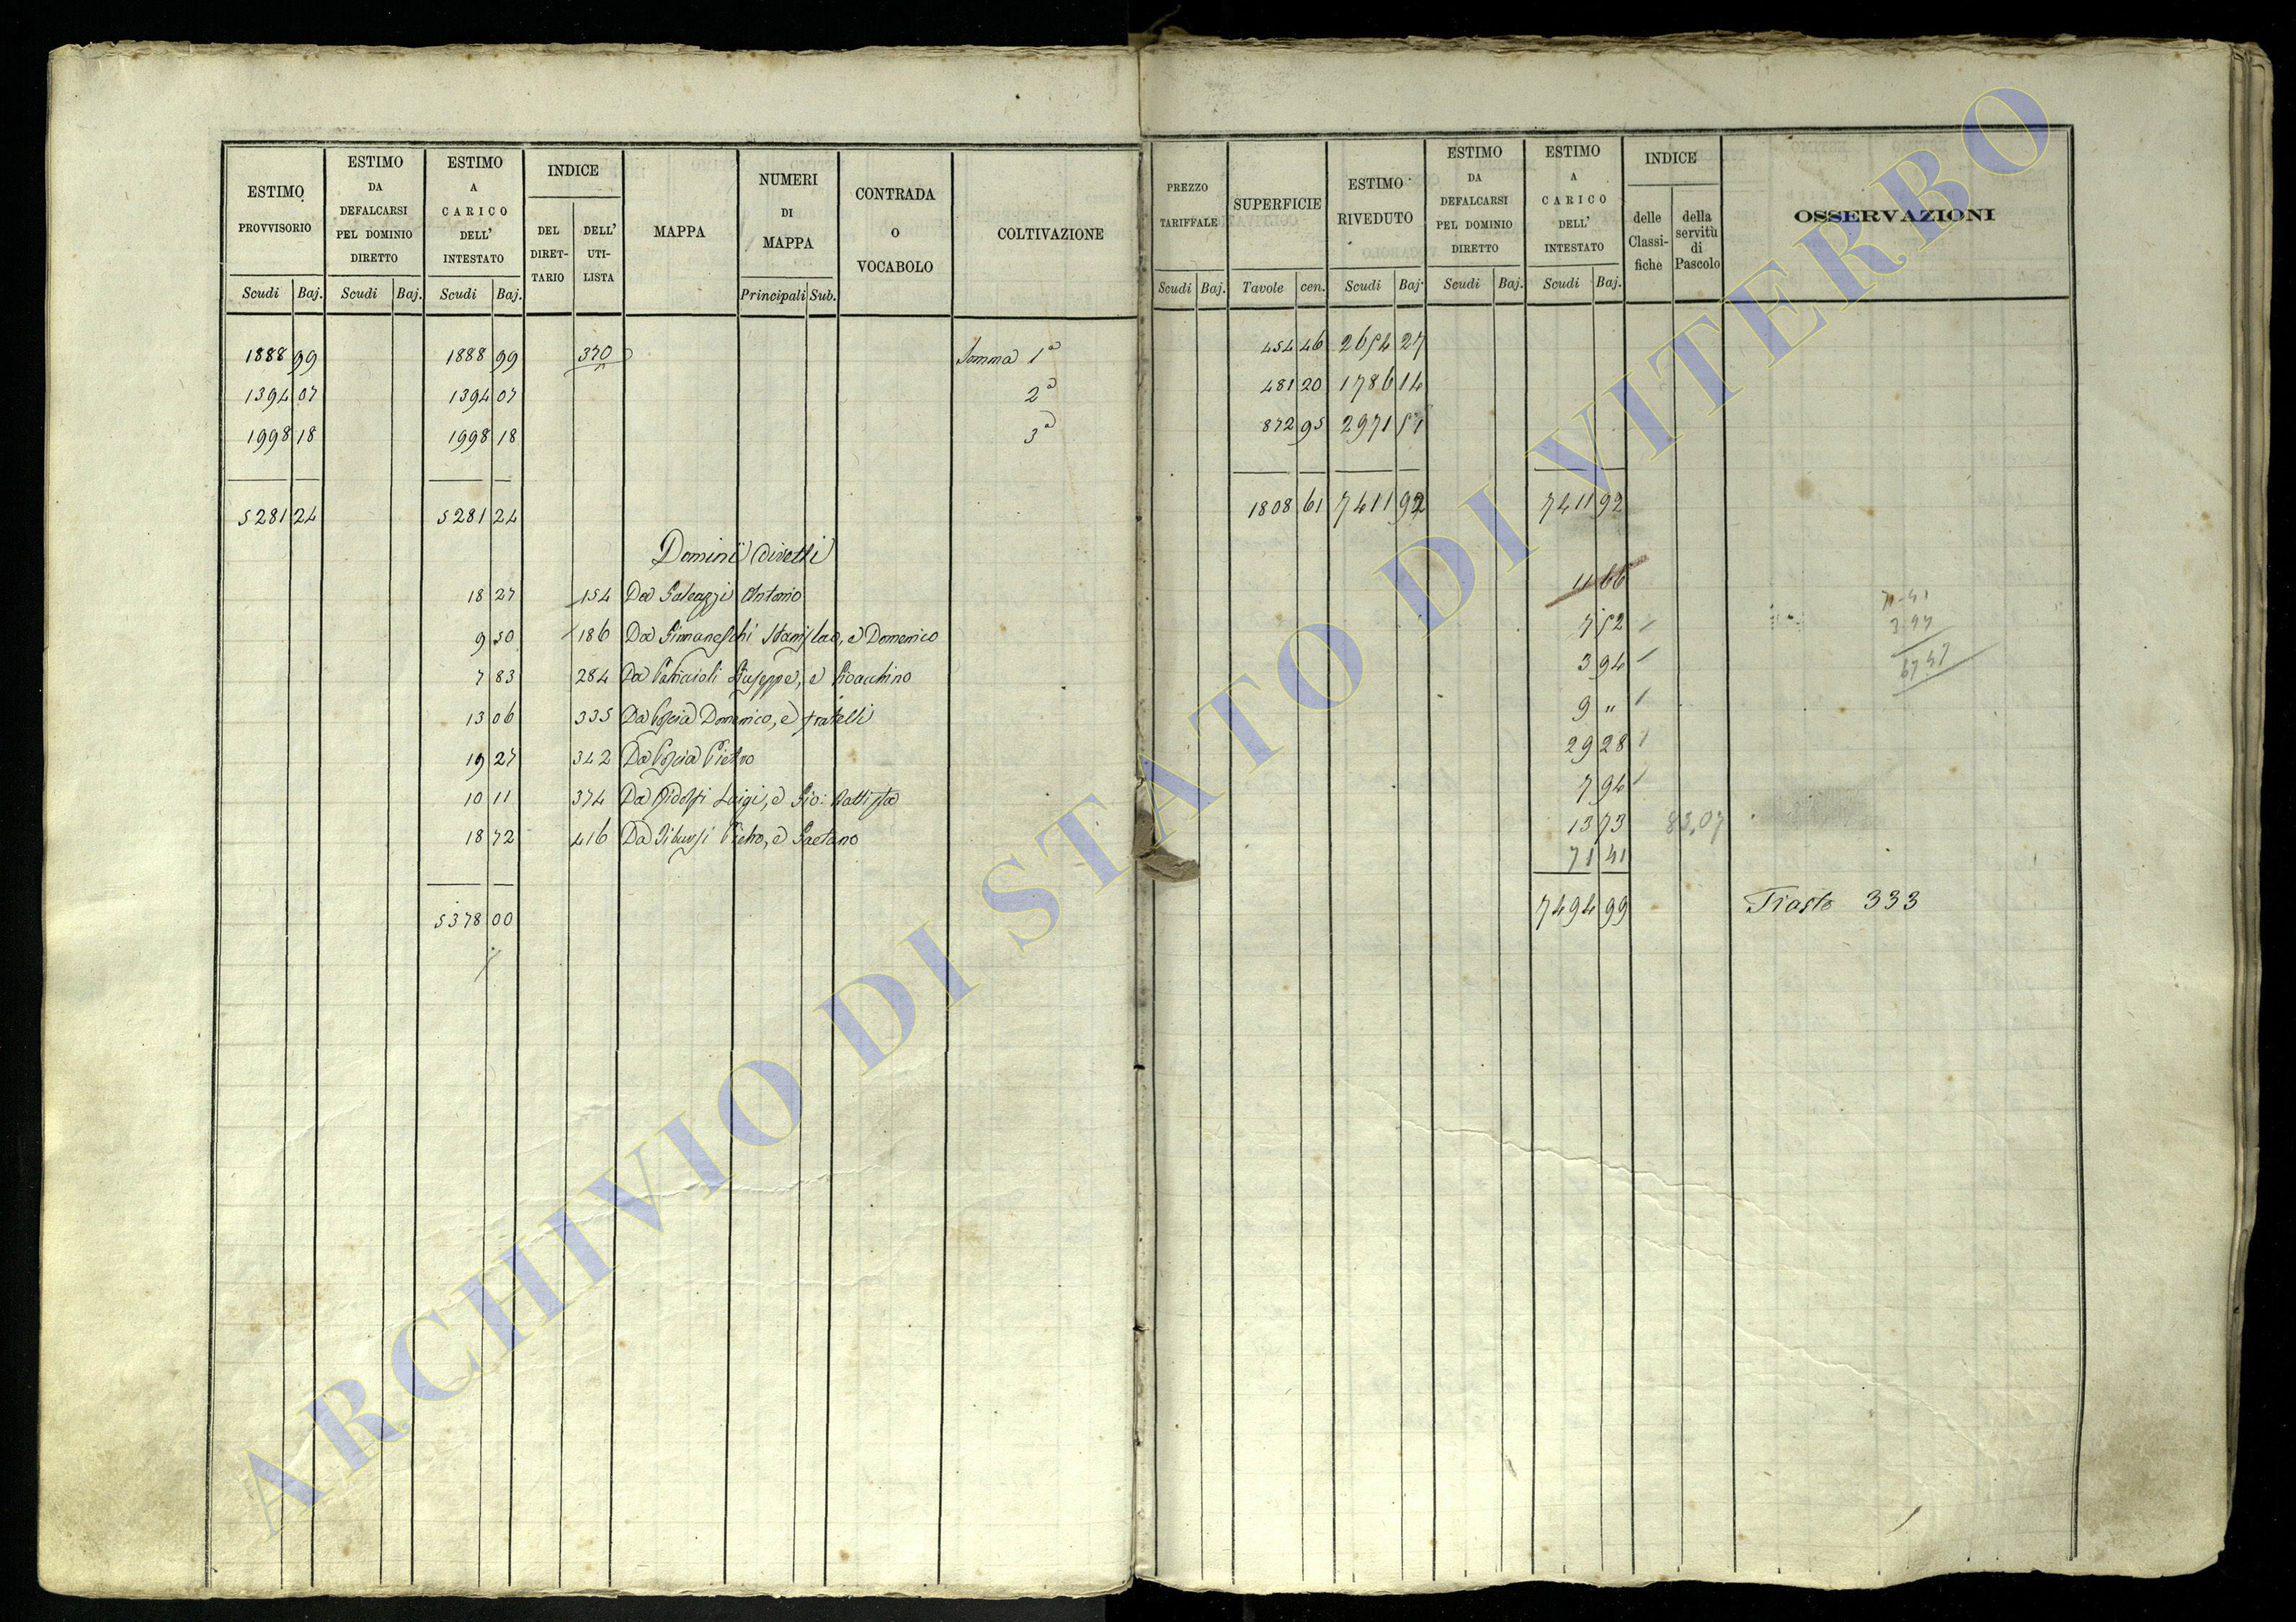 ESTIMO PROVVISORIO
Scudi Baj.
ESTIMO DA DEFALCARSI PEL DOMINIO DIRETTO
Scudi Baj.
ESTIMO A CARICO DELL' INTESTATO
Scudi Baj.
INDICE
DEL DIRET-TARIO
DELL' UTI-LISTA
MAPPA
NUMERI DI MAPPA
Principali Sub.
CONTRADA O VOCABOLO
COLTIVAZIONE
1888 99 1888 99 370 Somma 1a
1394 07 1394 07 2a
1998 18 1998 18 3a
5281 24 5281 24
Dominii diretti
18 27 154 Da Galeazzi Antonio
9 50 186 Da Stanislao, e Domenico
7 83 284 Da Giuseppe, e Gioacchino
13 06 335 Da Poscia Domenico, e fratelli
19 27 342 Da Poscia Pietro
10 11 374 Da Ridolfi Luigi, e Gio: Battista
18 72 416 Da Tiburzi Pietro, e Gaetano
5378 00
PREZZO TARIFFALE
Scudi Baj.
SUPERFICIE
Tavole cen.
ESTIMO RIVEDUTO
Scudi Baj.
ESTIMO DA DEFALCARSI PEL DOMINIO DIRETTO
Scudi Baj.
ESTIMO A CARICO DELL' INTESTATO
Scudi Baj.
INDICE
delle Classi-fiche
della servitù di Pascolo
OSSERVAZIONI
454 46 2654 27
481 20 1786 14
872 95 2971 51
1808 61 7411 92 7411 92
11 66
7 52
3 94
9 "
29 28
7 94
13 73 83,07
71 41
7494 99 333
71-41
3 94
67 47
ARCHIVIO DI STATO DI VITERBO